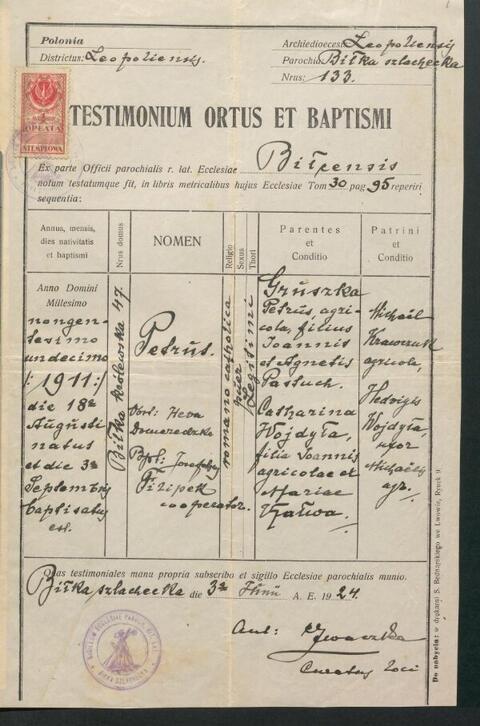 Polonia
Districtus: Leopoliensis.
Archiedioecesis Leopoliensis
Parochia Biłka szlachecka
Nrus: 133.
OPŁATA
STEMPLOWA
TESTIMONIUM ORTUS ET BAPTISMI
Ex parte Officii parochialis r. lat. Ecclesiae Biłcensis
notum testatumque fit, in libris metricalibus hujus Ecclesiae Tom 30 pag 95 reperiri
sequentia:
Annus, mensis,
dies nativitatis
et baptismi
Nrus domus
NOMEN
Religio
Sexus
Thori
Parentes
et
Conditio
Patrini
et
Conditio
Anno Domini
Millesimo
nongen-
tesimo
undecimo
/: 1911 :/
die 18a
Augusti
natus
et die 3a
Septembris
baptisatus
est.
Biłka królewska 47.
Petrus.
Obst: Heva
Bpt: Josephus
Filipek
cooperator.
romano catholica
Legitimi
Gruszka
Petrus, agri-
cola, filius
Joannis
et Agnetis
Pastuch.
Catharina
Wojdyła,
filia Joannis
agricolae et
Mariae
Michaël
Krawczuk
agricola,
Hedvigis
Wojdyła,
uxor
Michaëlis
agr.
Quas testimoniales manu propria subscribo et sigillo Ecclesiae parochialis munio.
Biłka szlachecka die 3a A. E. 1924.
Ant:
Curatus loci
BIŁKA SZLACHECKA
Do nabycia: w drukarni S. Bednarskiego we Lwowie, Rynek 9.